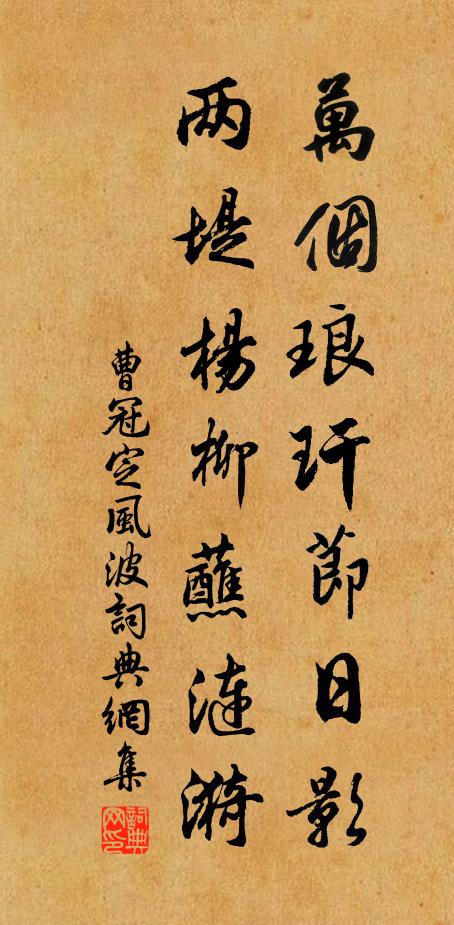 萬個琅玕篩日影
两堤楊柳蘸漣漪
曹冠定風波詞典網集
詞典
网印